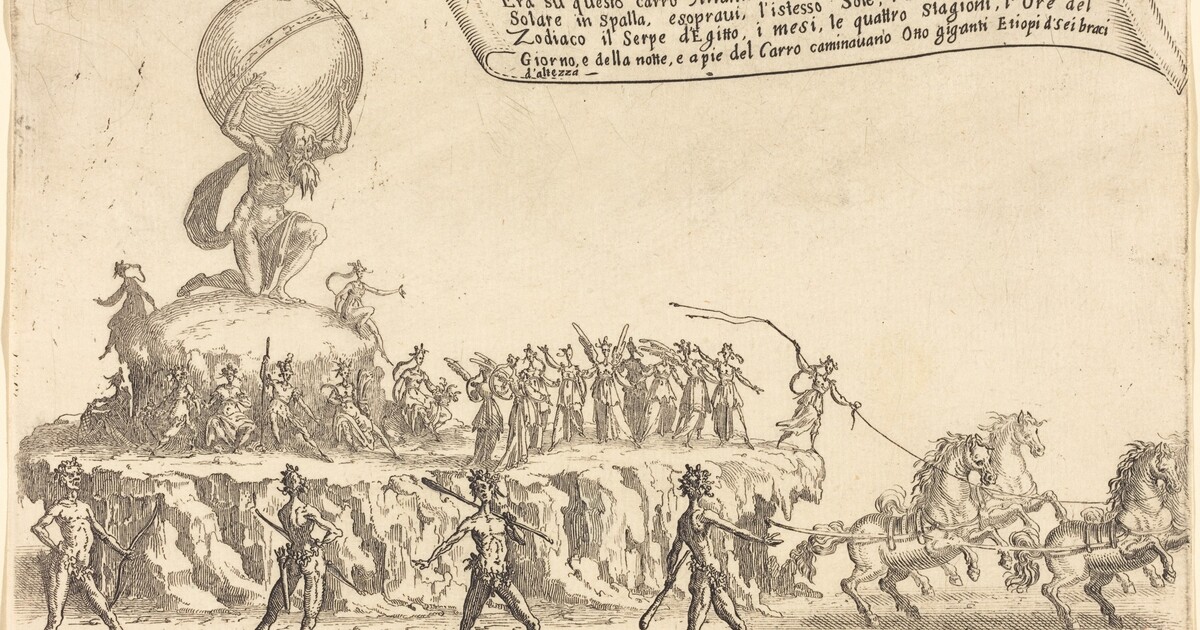 Era su questo carro
Solare in Spalla, esopraui, l'istesso Sole,
Zodiaco il Serpe d'Egitto, i mesi, le quattro Stagioni, l'Ore del
Giorno, e della notte, e a pie del Carro caminauano Otto giganti Etiopi d'sei braci
d'altezza —